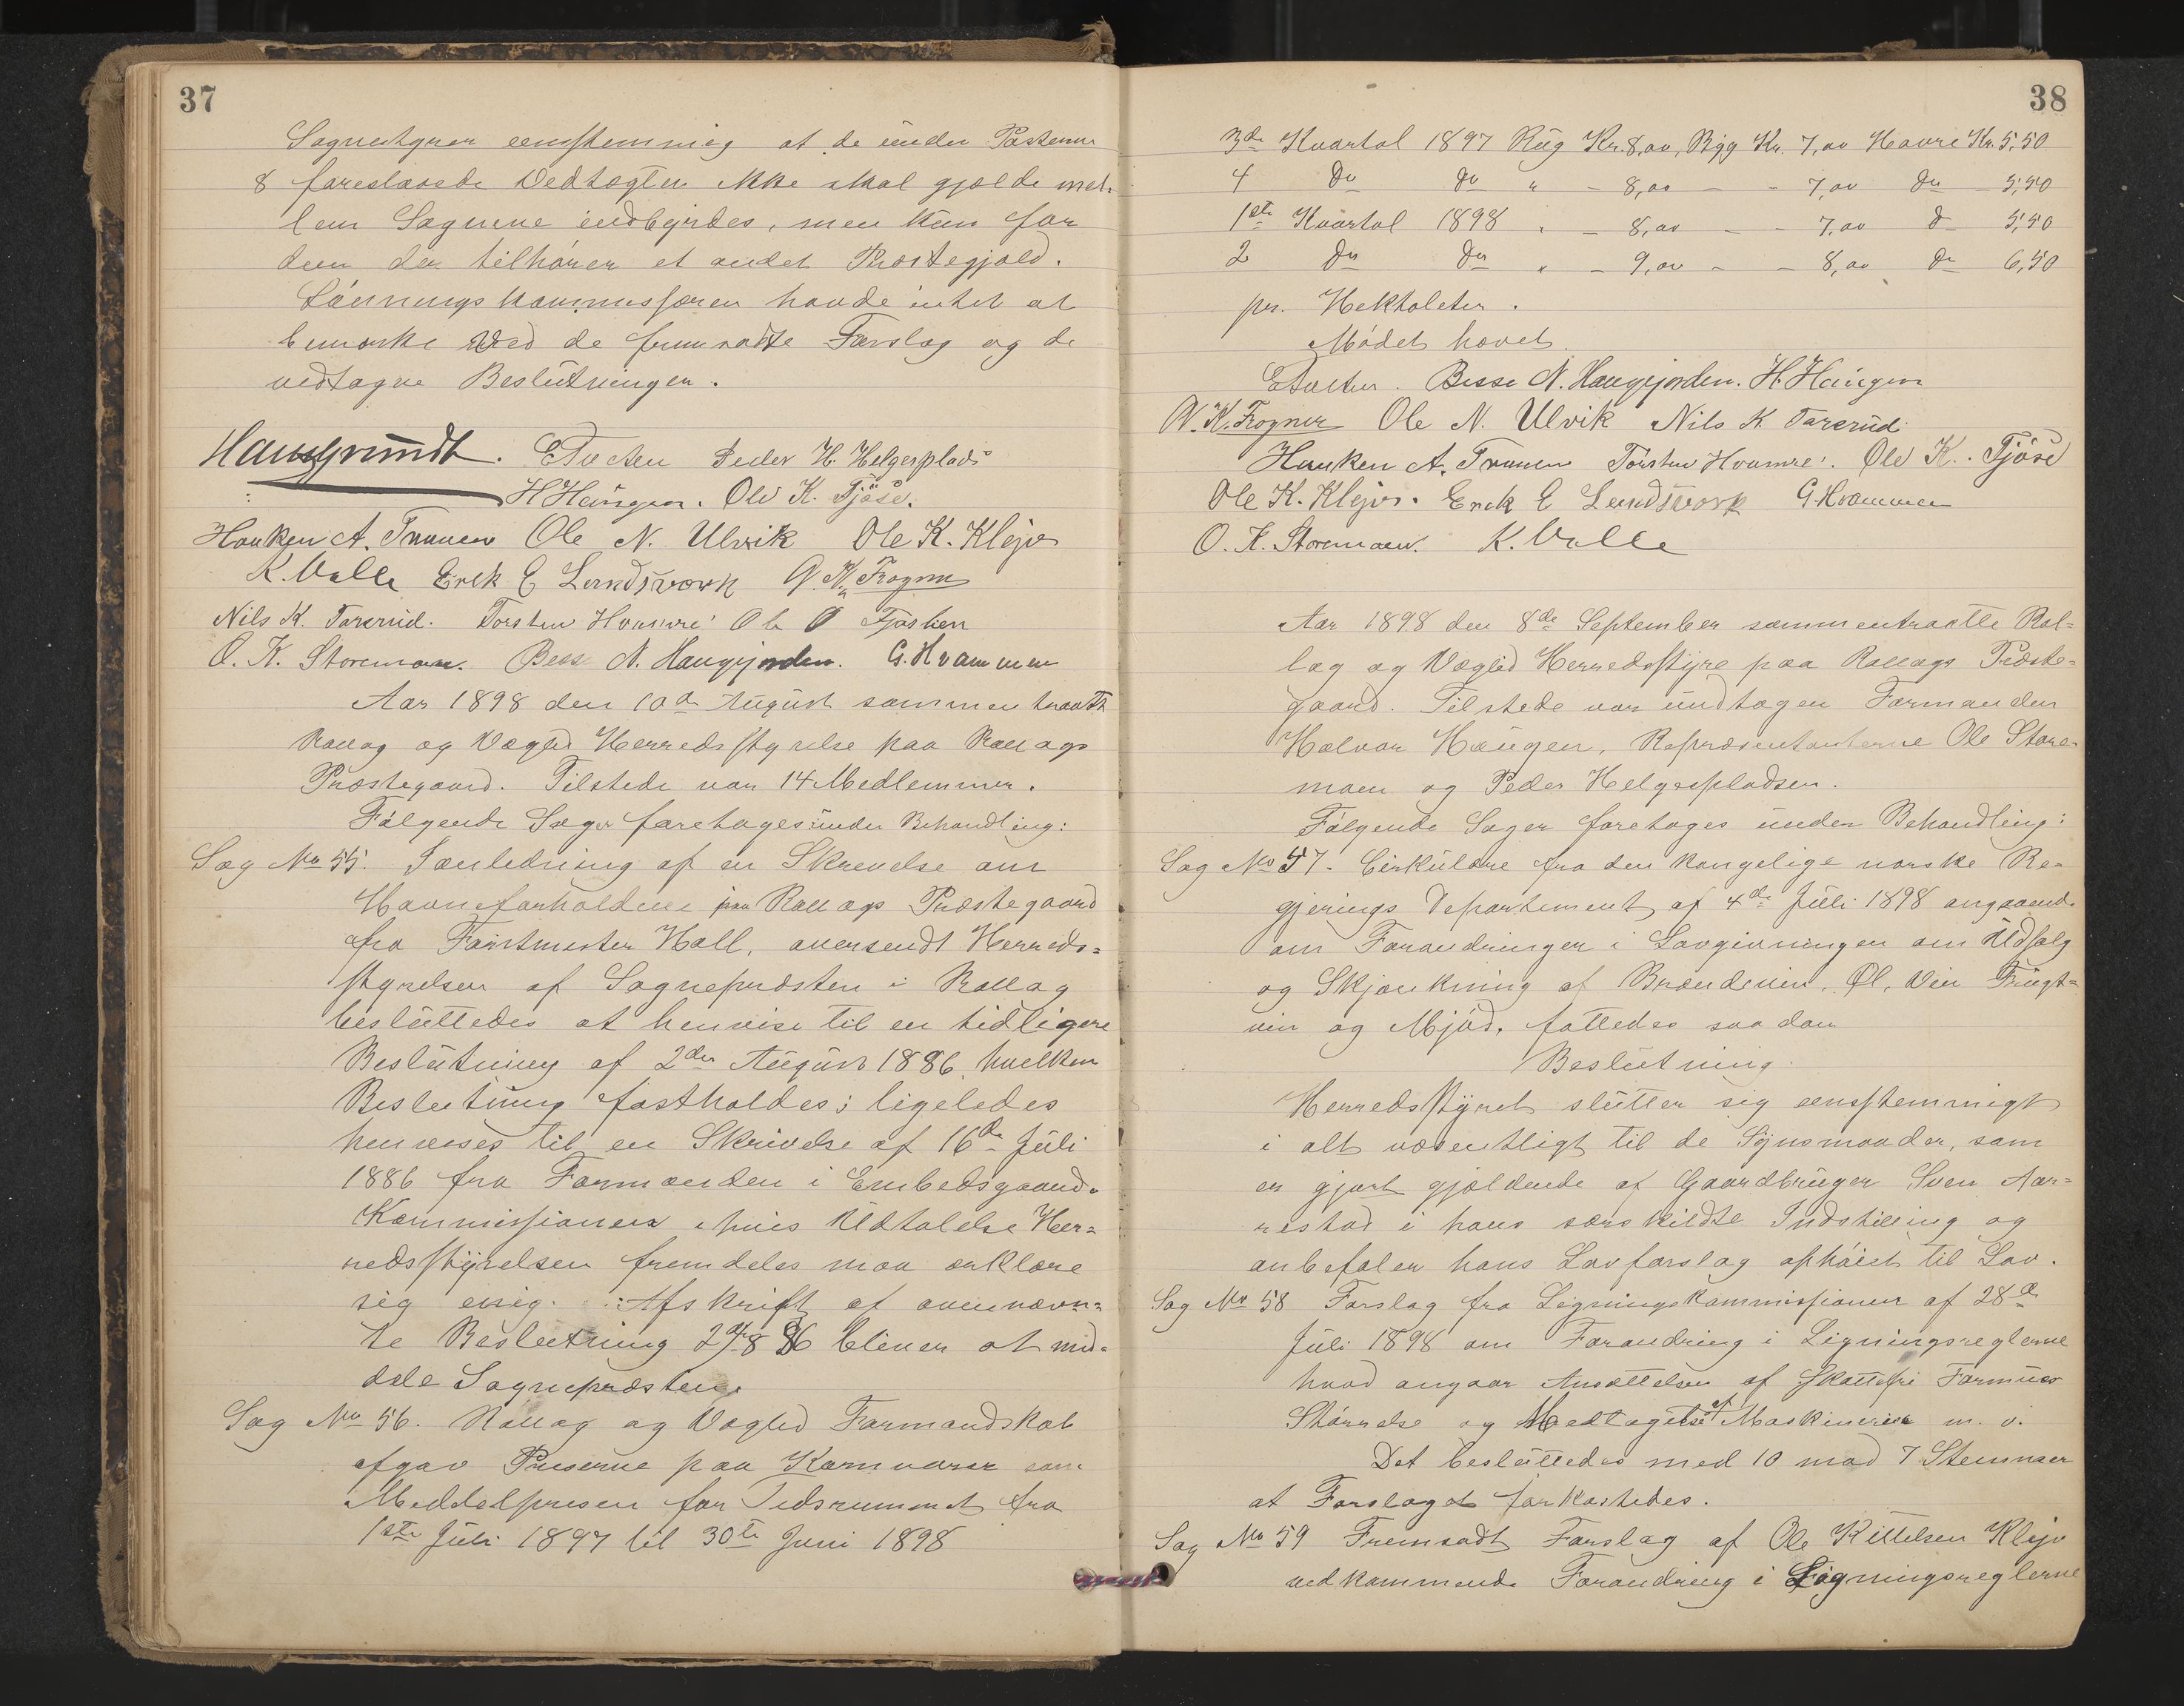 37
Sognestyrer eenstemmig at de under Posterne
8 foreslaaede Vedtægter ikke skal gjælde mel-
lem Sognene indbyrdes, men kun for
dem der tilhører et andet Præstegjæld.
Lønningskommissæren havde intet at
bemærke ved de fremsatte Forslag og de
vedtagne Beslutninger.
Haugrundt. Peder H. Helgesplads
H Haugen. Ole K. Fjøse.
Haaken A. Traaen Ole N. Ulvik Ole K. Klejv
K. Valle Erek E Landsværk N. K. Frogner
Nils K. Tarerud. Torsten Hvamre Ole O
O. K. Storemoen. Besse N. Haugejorden. G. Kvammen
Aar 1898 den 10de August sammentraatte
Rollag og Vægli Herredsstyrelse paa Rollags
Præstegaard. Tilstede var 14 Medlemmer.
Følgende Sager foretages under Behandling:
Sag No 55. I anledning af en Skrevelse om
Havneforholdene paa Rollags Præstegaard
fra Forstmester Holl, oversendt Herreds-
styrelsen af Sognepræsten i Rollag
besluttedes at henvise til en tidligere
Beslutning af 2den August 1886, hvilken
Beslutning fastholdes; ligeledes
henvises til en Skrivelse af 16de Juli
1886 fra Formanden i Embedsgaards
Kommissionen hvis Udtalelse Her-
redsstyrelsen fremdeles maa erklære
sig enig. Afskrift af ovennævn-
te Beslutning 2/8 86 bliver at med-
dele Sognepræsten.
Sag No 56. Rollag og Væglid Formandskab
afgav Priserne paa Kornvarer som
Meddelprisen for Tidsrummet fra
1ste Juli 1897 til 30te Juni 1898
38
3de Kvartal 1897 Rug Kr. 8,00, Bjgg Kr. 7,00 Havre Kr. 5,50
4 do do " - 8,00 - - 7,00 do - 5,50
1ste Kvartal 1898 " - 8,00 - - 7,00 do - 5,50
2 do do " - 9,00 - - 8,00 do - 6,50
pr. Hektoleter.
Mødet hævet.
Besse N. Haugejorden. H. Haugen
N. K. Frogner Ole N. Ulvik Nils K Tarerud
Haaken A. Traaen Torsten Hvamre. Ole K. Fjøse
Ole K. Klejv. Erek E Landsværk G. Kvammen
O. K. Storemoen. K. Valle
Aar 1898 den 8de September sammentraatte Rol-
lag og Væglid Herredsstyre paa Rollags Præste-
gaard. Tilstede var undtagen Formanden
Halvor Haugen, Repræsentanterne Ole Store-
moen og Peder Helgespladsen.
Følgende Sager foretages under Behandling:
Sag No 57. Cirkulære fra den kongelige norske Re-
gjerings Departement af 4de Juli 1898 angaaende
om Forandringer i Lovgivningen om Udsalg
og Skjænkning af Brændevin, Øl, Vin Frugt-
vin og Mjød, fattedes saadan
Beslutning.
Herredsstyret slutter sig eenstemmigt
i alt væsentligt til de Synsmaader, som
er gjort gjældende af Gaardbruger Sven Aar-
restad i hans særskildte Indstilling og
anbefaler hans Lovforslag ophøiet til Lov.
Sag No 58 Forslag fra Ligningskommissionen af 28de
Juli 1898 om Forandring i Ligningsreglerne
hvad angaar Ansættelsen af Skattefri Formues
Størrelse og Medtagelse af Maskinerier m. v.
Det besluttedes med 10 mod 7 Stemmer
at Forslaget forkastedes.
Sag No 59 Fremsadt Forslag af Ole Kittelsen Klejv
vedkommende Forandring i Ligningsreglerne